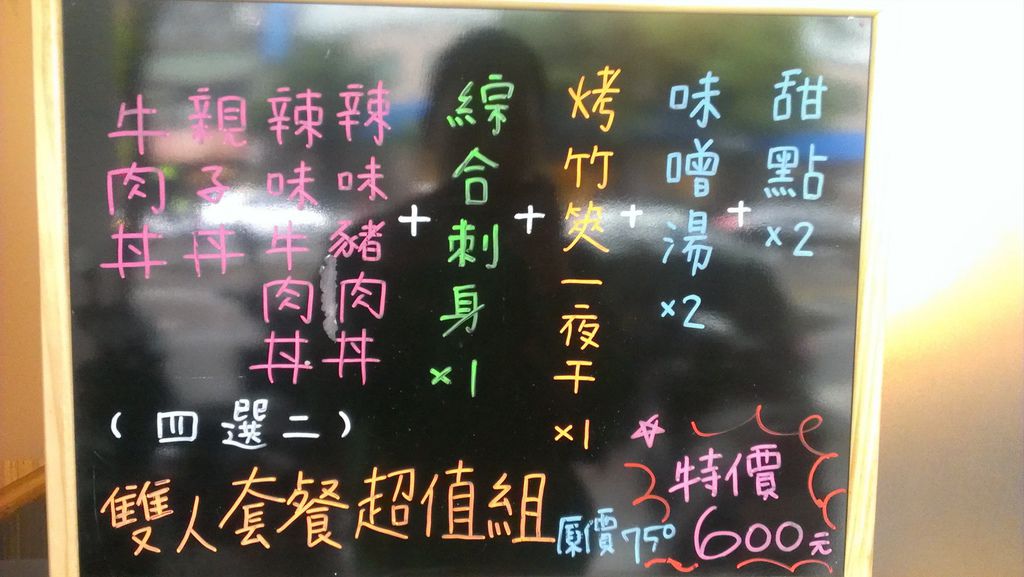 辣味豬肉丼
辣味牛肉丼
親子丼
牛肉丼
(四選二)
+
綜合刺身x1
+
烤竹筴一夜干x1
+
味噌湯x2
+
甜點x2
雙人套餐超值組
原價750
特價
600元